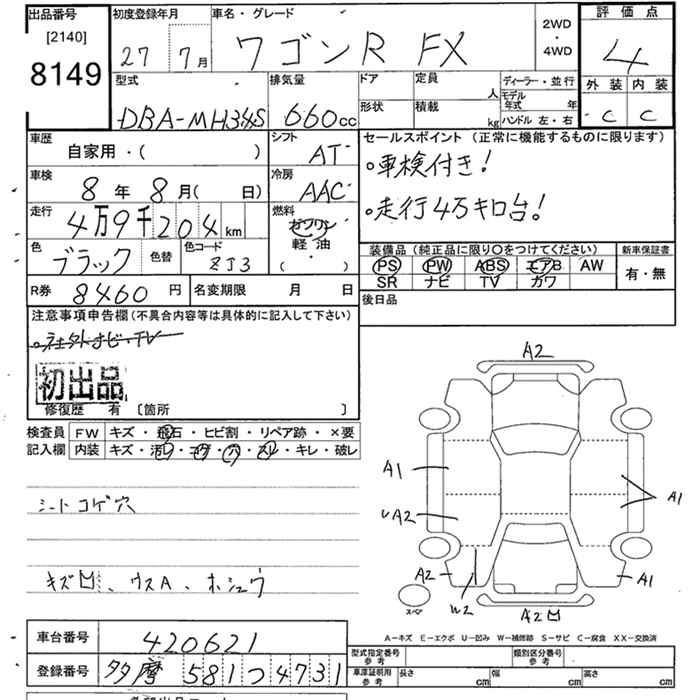 出品番号 初度登録年月 車名・グレード 2WD・4WD 評価点
[2140]
8149 27 7月 ワゴンR FX 4
型式 排気量 ドア 定員 人 ディーラー・並行 外装 内装
モデル年式 年
DBA-MH34S 660cc 形状 積載 kg ハンドル 左・右 C C
車歴 シフト セールスポイント (正常に機能するものに限ります)
自家用・( ) AT
車検 冷房 ○車検付き!
8年8月( 日) AAC
走行 燃料 ○走行4万キロ台!
4万9千204km ガソリン
軽油
( )
色 色替 色コード 装備品 (純正品に限り○をつけてください) 新車保証書
ブラック ZJ3 PS PW ABS エアB AW 有・無
SR ナビ TV カワ
R券 8460円 名変期限 月 日 後日品
注意事項申告欄 (不具合内容等は具体的に記入して下さい)
○社外ナビ・TV
初出品
修復歴 有 [箇所 ]
検査員 FW キズ・飛石・ヒビ割・リペア跡・×要
記入欄 内装 キズ・汚レ・コゲ・穴・スレ・キレ・破レ
シートコゲ穴
キズ凹、ウスA、ホシュウ
A2
A1
UA2
A1
A2
W2
A1
スペア
A2凹
A-キズ E-エクボ U-凹み W-補修跡 S-サビ C-腐食 XX-交換済
車台番号 420621
型式指定番号 参考 類別区分番号 参考
登録番号 多摩 581 つ 4731
車庫証明用 参考 長さ cm 幅 cm 高さ cm